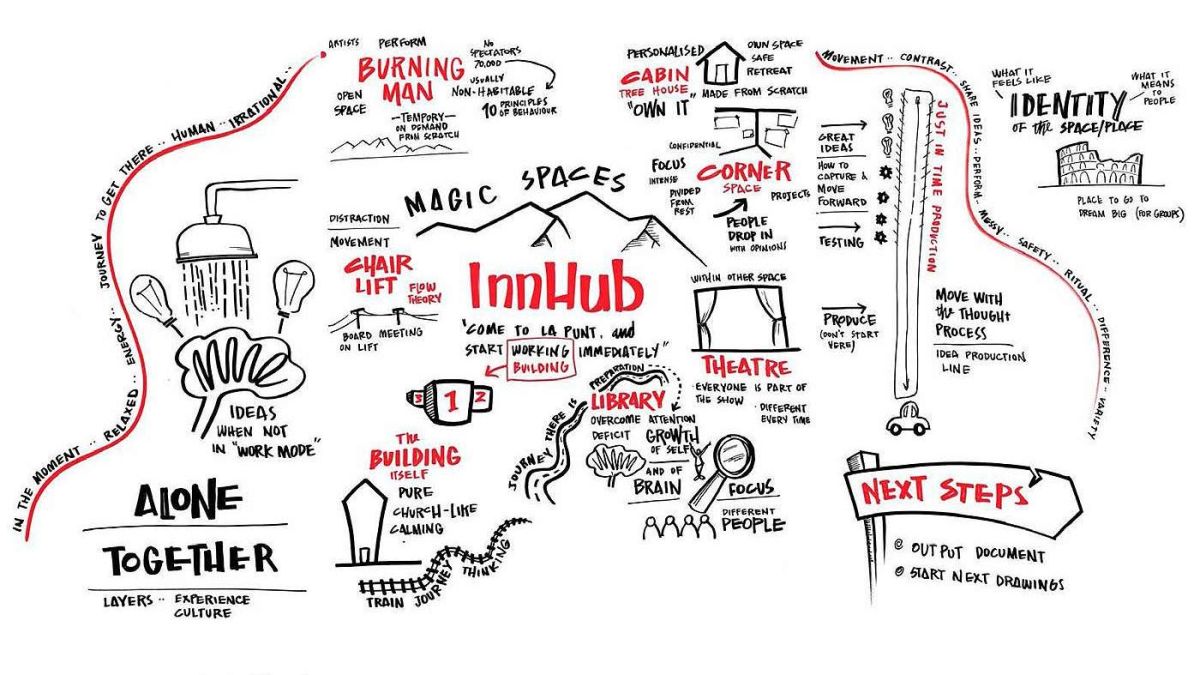 IN THE MOMENT ·· RELAXED ·· ENERGY ·· JOURNEY TO GET THERE ·· HUMAN ·· IRRATIONAL ··
ARTISTS
PERFORM
NO
SPECTATORS
70,000
BURNING
MAN
USUALLY
NON-HABITABLE
OPEN
SPACE
10 PRINCIPLES
OF BEHAVIOUR
— TEMPORY —
ON DEMAND
FROM SCRATCH
IDEAS
WHEN NOT
IN "WORK MODE"
ALONE
TOGETHER
LAYERS ·· EXPERIENCE
CULTURE
MAGIC SPACES
DISTRACTION
MOVEMENT
CHAIR
LIFT
FLOW
THEORY
BOARD MEETING
ON LIFT
InnHub
"COME TO LA PUNT, and
START WORKING IMMEDIATELY"
BUILDING
3 1 2
THE
BUILDING
ITSELF
PURE
CHURCH-LIKE
CALMING
TRAIN JOURNEY THINKING
JOURNEY THERE IS PREPARATION
LIBRARY
OVERCOME ATTENTION
DEFICIT
GROWTH
OF SELF
AND OF
BRAIN
FOCUS
DIFFERENT
PEOPLE
PERSONALISED
CABIN
TREE HOUSE
"OWN IT"
OWN SPACE
SAFE
RETREAT
MADE FROM SCRATCH
CONFIDENTIAL
FOCUS
INTENSE
DIVIDED
FROM
REST
CORNER
SPACE
PROJECTS
PEOPLE
DROP IN
WITH OPINIONS
WITHIN OTHER SPACE
THEATRE
· EVERYONE IS PART OF
THE SHOW
· DIFFERENT
EVERY TIME
GREAT
IDEAS
HOW TO
CAPTURE &
MOVE
FORWARD
TESTING
PRODUCE
(DON'T START
HERE)
JUST IN TIME PRODUCTION
MOVE WITH
the THOUGHT
PROCESS
IDEA PRODUCTION
LINE
MOVEMENT ·· CONTRAST ·· SHARE IDEAS ·· PERFORM ·· MESSY ·· SAFETY ·· RITUAL ·· DIFFERENCE ·· VARIETY
WHAT IT
FEELS LIKE
WHAT IT
MEANS
TO
PEOPLE
IDENTITY
OF the SPACE/PLACE
PLACE TO GO TO
DREAM BIG (FOR GROUPS)
NEXT STEPS
OUTPUT DOCUMENT
START NEXT DRAWINGS